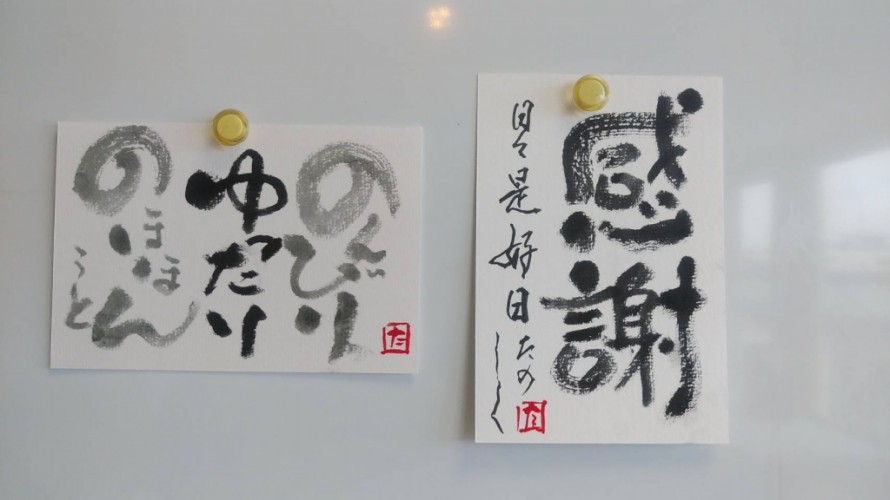 のんびり
ゆったり
のほほん
た
感謝
日々是好日 たのしく